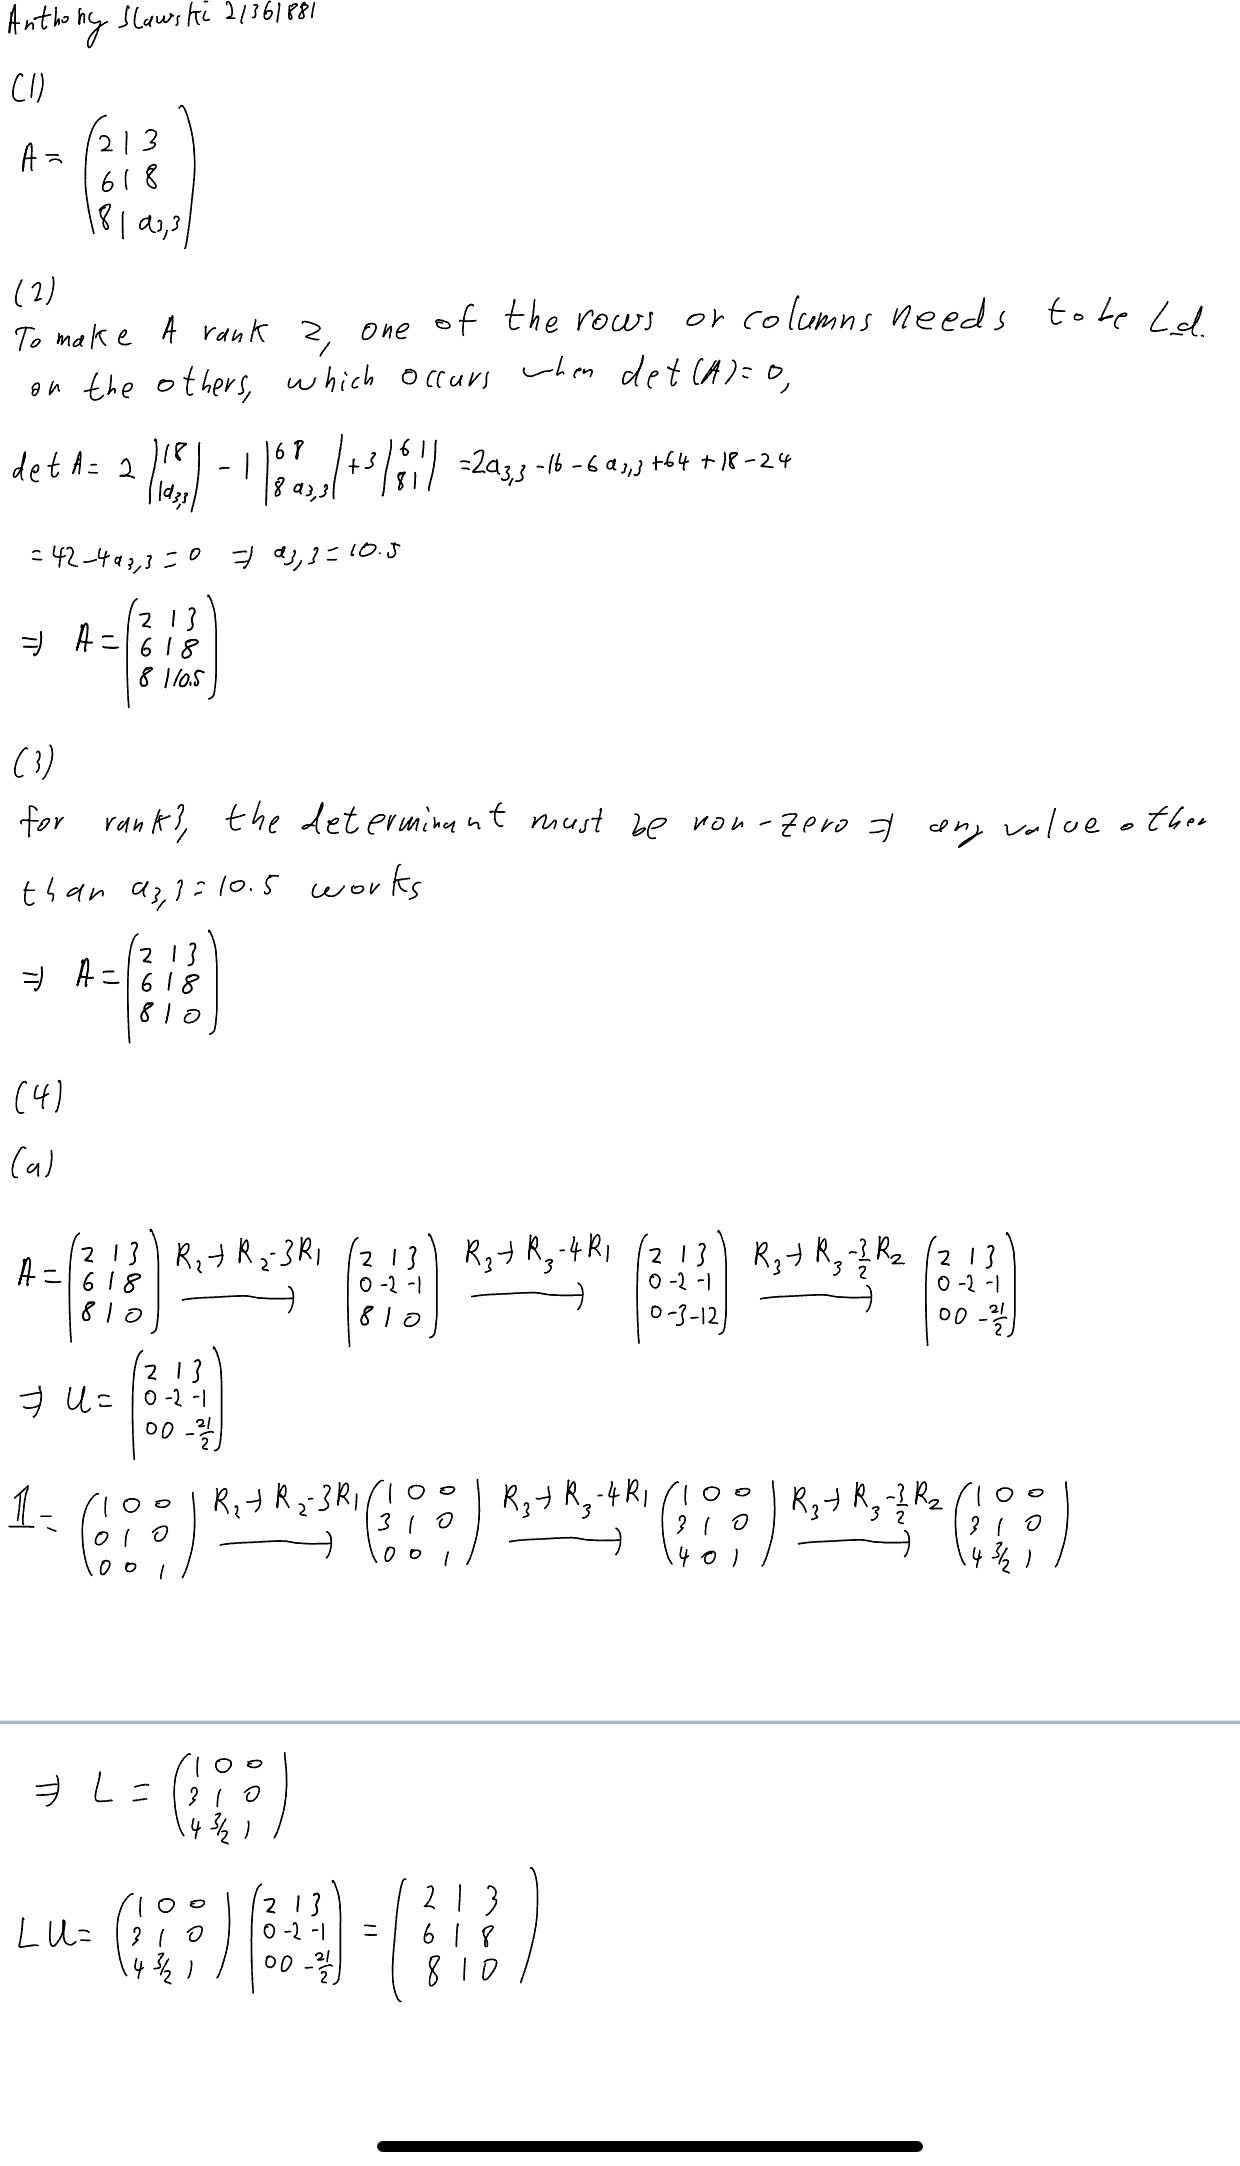 Anthony Slawski 21361881
(1)
A = (2 1 3
6 1 8
8 1 a3,3)
(2)
To make A rank 2, one of the rows or columns needs to be Ld.
on the others, which occurs when det(A)=0,
det A = 2 |1 8 1 a3,3| - 1 |6 8 8 a3,3| + 3 |6 1 8 1| = 2a3,3 - 16 - 6a3,3 + 64 + 18 - 24
= 42 - 4a3,3 = 0 ⇒ a3,3 = 10.5
⇒ A = (2 1 3
6 1 8
8 1 10.5)
(3)
for rank 3, the determinant must be non-zero ⇒ any value other
than a3,3 = 10.5 works
⇒ A = (2 1 3
6 1 8
8 1 0)
(4)
(a)
A = (2 1 3 6 1 8 8 1 0) R2→R2-3R1 (2 1 3 0 -2 -1 8 1 0) R3→R3-4R1 (2 1 3 0 -2 -1 0 -3 -12) R3→R3-3/2R2 (2 1 3 0 -2 -1 0 0 -21/2)
⇒ U = (2 1 3
0 -2 -1
0 0 -21/2)
𝟙 = (1 0 0 0 1 0 0 0 1) R2→R2-3R1 (1 0 0 3 1 0 0 0 1) R3→R3-4R1 (1 0 0 3 1 0 4 0 1) R3→R3-3/2R2 (1 0 0 3 1 0 4 3/2 1)
⇒ L = (1 0 0
3 1 0
4 3/2 1)
LU = (1 0 0 3 1 0 4 3/2 1) (2 1 3 0 -2 -1 0 0 -21/2) = (2 1 3 6 1 8 8 1 0)